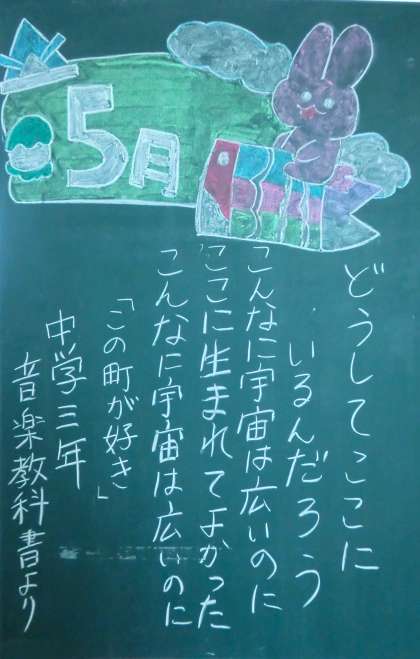 5月
どうしてここに
いるんだろう
こんなに宇宙は広いのに
ここに生まれてよかった
こんなに宇宙は広いのに
「この町が好き」
中学三年
音楽教科書より